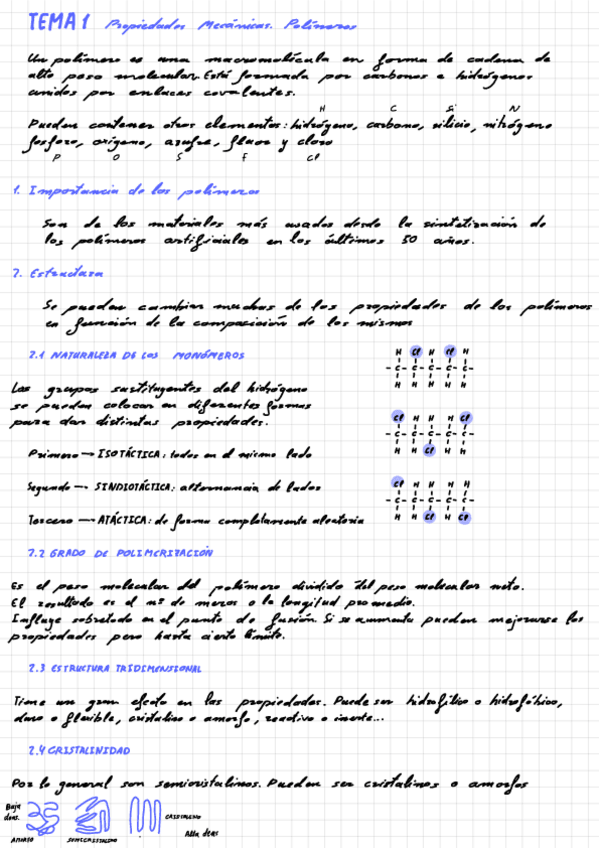 TEMA 1 Propiedades Mecánicas. Polímeros
Un polímero es una macromolécula en forma de cadena de
alto peso molecular. Está formada por carbonos e hidrógenos
unidos por enlaces covalentes.
H C Si N
Pueden contener otros elementos: hidrógeno, carbono, silicio, nitrógeno
fosforo, oxígeno, azufre, fluor y cloro
P O S F Cl
1. Importancia de los polímeros
Son de los materiales más usados desde la sintetización de
los polímeros artificiales en los últimos 50 años.
2. Estructura
Se pueden cambiar muchas de las propiedades de los polímeros
en función de la composición de los mismos
2.1 NATURALEZA DE LOS MONÓMEROS
H Cl H Cl H
- C - C - C - C - C -
H H H H H
Los grupos sustituyentes del hidrógeno
se pueden colocar en diferentes formas
para dar distintas propiedades.
Cl H H H Cl
- C - C - C - C - C -
H H Cl H H
Primero → ISOTÁCTICA: todos en el mismo lado
Segundo → SINDIOTÁCTICA: alternancia de lados
Tercero → ATÁCTICA: de forma completamente aleatoria
Cl H H H H
- C - C - C - C - C -
H H Cl H Cl
2.2 GRADO DE POLIMERIZACIÓN
Es el peso molecular del polímero dividido del peso molecular neto.
El resultado es el nº de meros o la longitud promedio.
Influye sobretodo en el punto de fusión. Si se aumenta pueden mejorarse las
propiedades pero hasta cierto límite.
2.3 ESTRUCTURA TRIDIMENSIONAL
Tiene un gran efecto en las propiedades. Puede ser hidrofílico o hidrofóbico,
duro o flexible, cristalino o amorfo, reactivo o inerte...
2.4 CRISTALINIDAD
Por lo general son semicristalinos. Pueden ser cristalinos o amorfos
Baja
dens.
AMORFO
SEMICRISTALINO
CRISTALINO
Alta dens